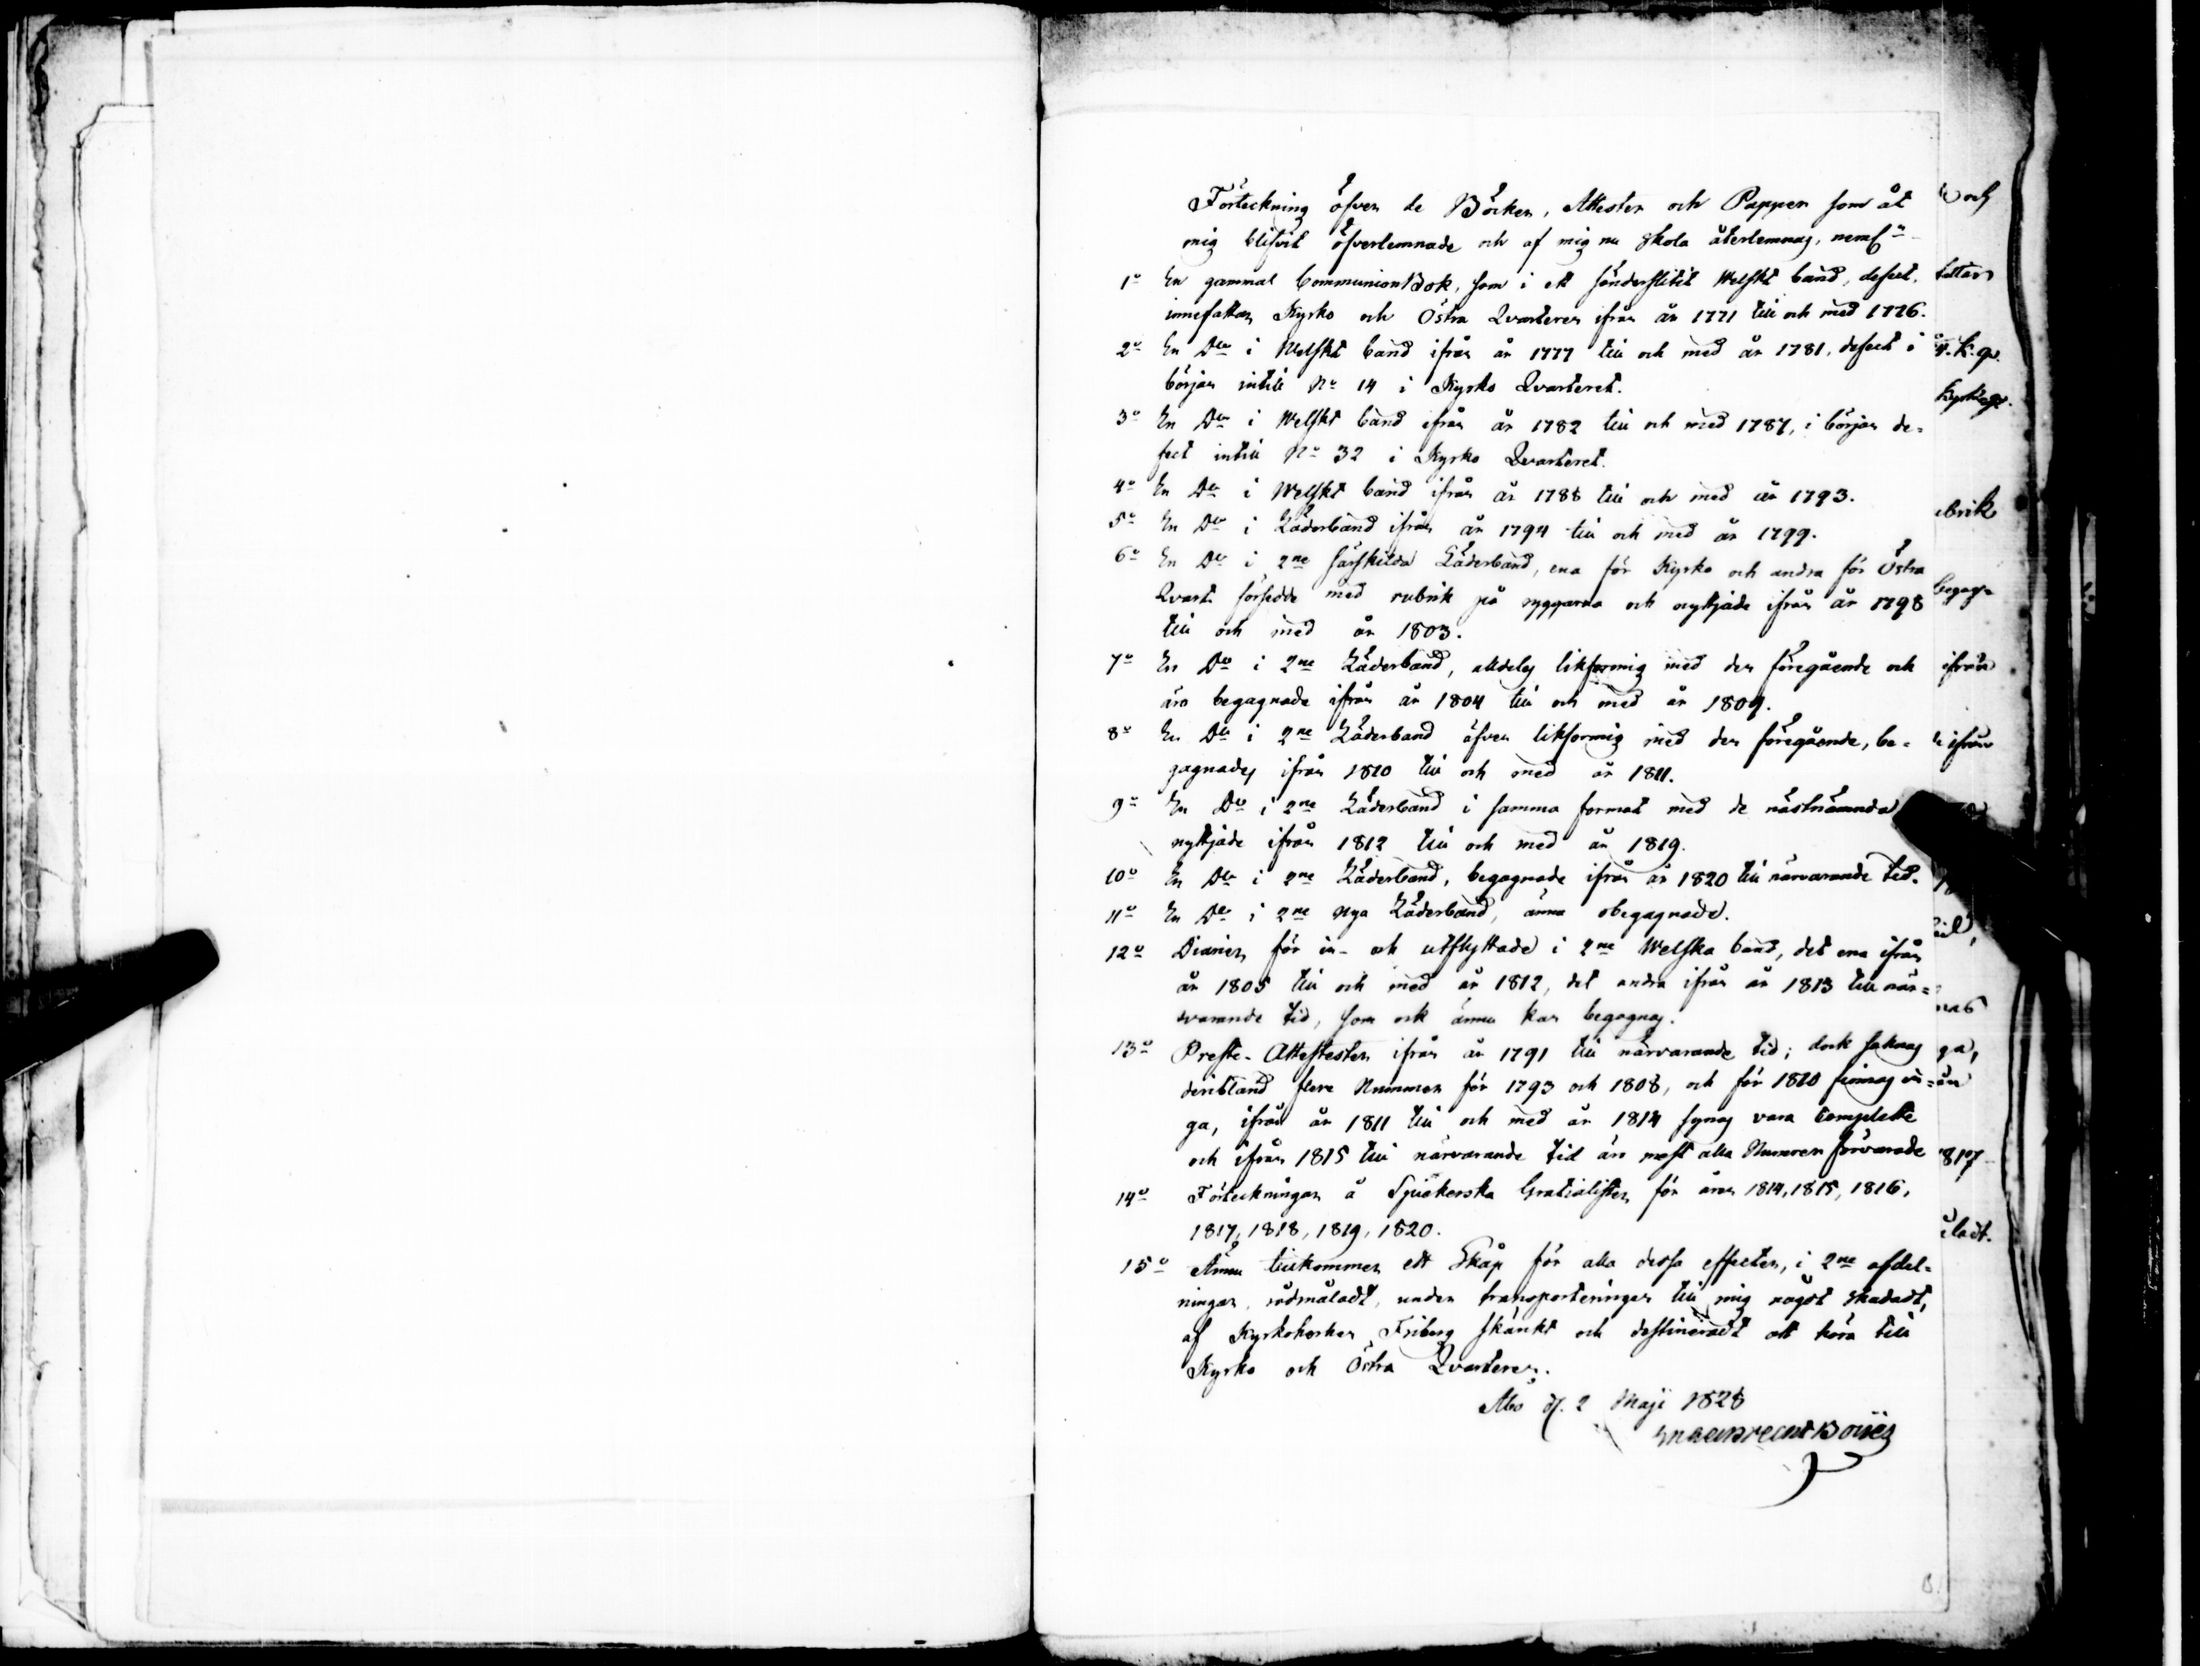 Förteckning öfver de Böcker, Attester och Papper som åt
mig blifvit öfverlemnade och af mig nu skola återlemnas, neml:n
1o En gammal CommunionBok, som i ett sönderslitit Welskt band, defect,
innefattar Kyrko och Östra Qvarteren ifrån år 1771 till och med 1776.
2o En Do i Welskt band ifrån år 1777 till och med år 1781, defect i
början intill No 14 i Kyrko Qvarteret.
3o En Do i Welskt band ifrån år 1782 till och med 1787, i början de=
fect intill No 32 i Kyrko Qvarteret.
4o En Do i Welskt band ifrån år 1788 till och med år 1793.
5o En Do i Läderband ifrån år 1794 till och med år 1799.
6o En Do i 2ne särskilda Läderband, ena för Kyrko och andra för Östra
Qvart. försedde med rubrik på ryggarna och nyttjade ifrån år 1798
till och med år 1803.
7o En Do i 2ne Läderband, alldeles likformig med den föregående och
äro begagnade ifrån år 1804 till och med år 1809.
8o En Do i 2ne Läderband äfven likformig med den föregående, be=
gagnades ifrån 1810 till och med år 1811.
9o En Do i 2ne Läderband i samma format med de nästnämnda
nyttjade ifrån 1812 till och med år 1819.
10o En Do i 2ne Läderband, begagnade ifrån år 1820 till närvarande tid.
11o En Do i 2ne nya Läderband, ännu obegagnade.
12o Diarier för in- och utflyttade i 2ne Welska band, det ena ifrån
år 1805 till och med år 1812, det andra ifrån år 1813 till när=
varande tid, som ock ännu kan begagnas.
13o Preste-Attester ifrån år 1791 till närvarande tid; dock saknas
deribland flere Nummer för 1793 och 1808, och för 1810 finnas in=
ga, ifrån år 1811 till och med år 1814 synas vara complette
och ifrån 1815 till närvarande tid äro mest alla Numren förvarade
14o Förteckningar å Spiäkerska Gratialister för åren 1814, 1815, 1816,
1817, 1818, 1819, 1820.
15o Ännu tillkommer ett Skåp för alla dessa effecter, i 2ne afdel=
ningar, rödmåladt, under transporteringen till mig något skadadt,
af Kyrkoherden Friberg skänkt och destineradt att höra till
Kyrko och Östra Qvarteren.
Åbo d. 2 Maji 1828